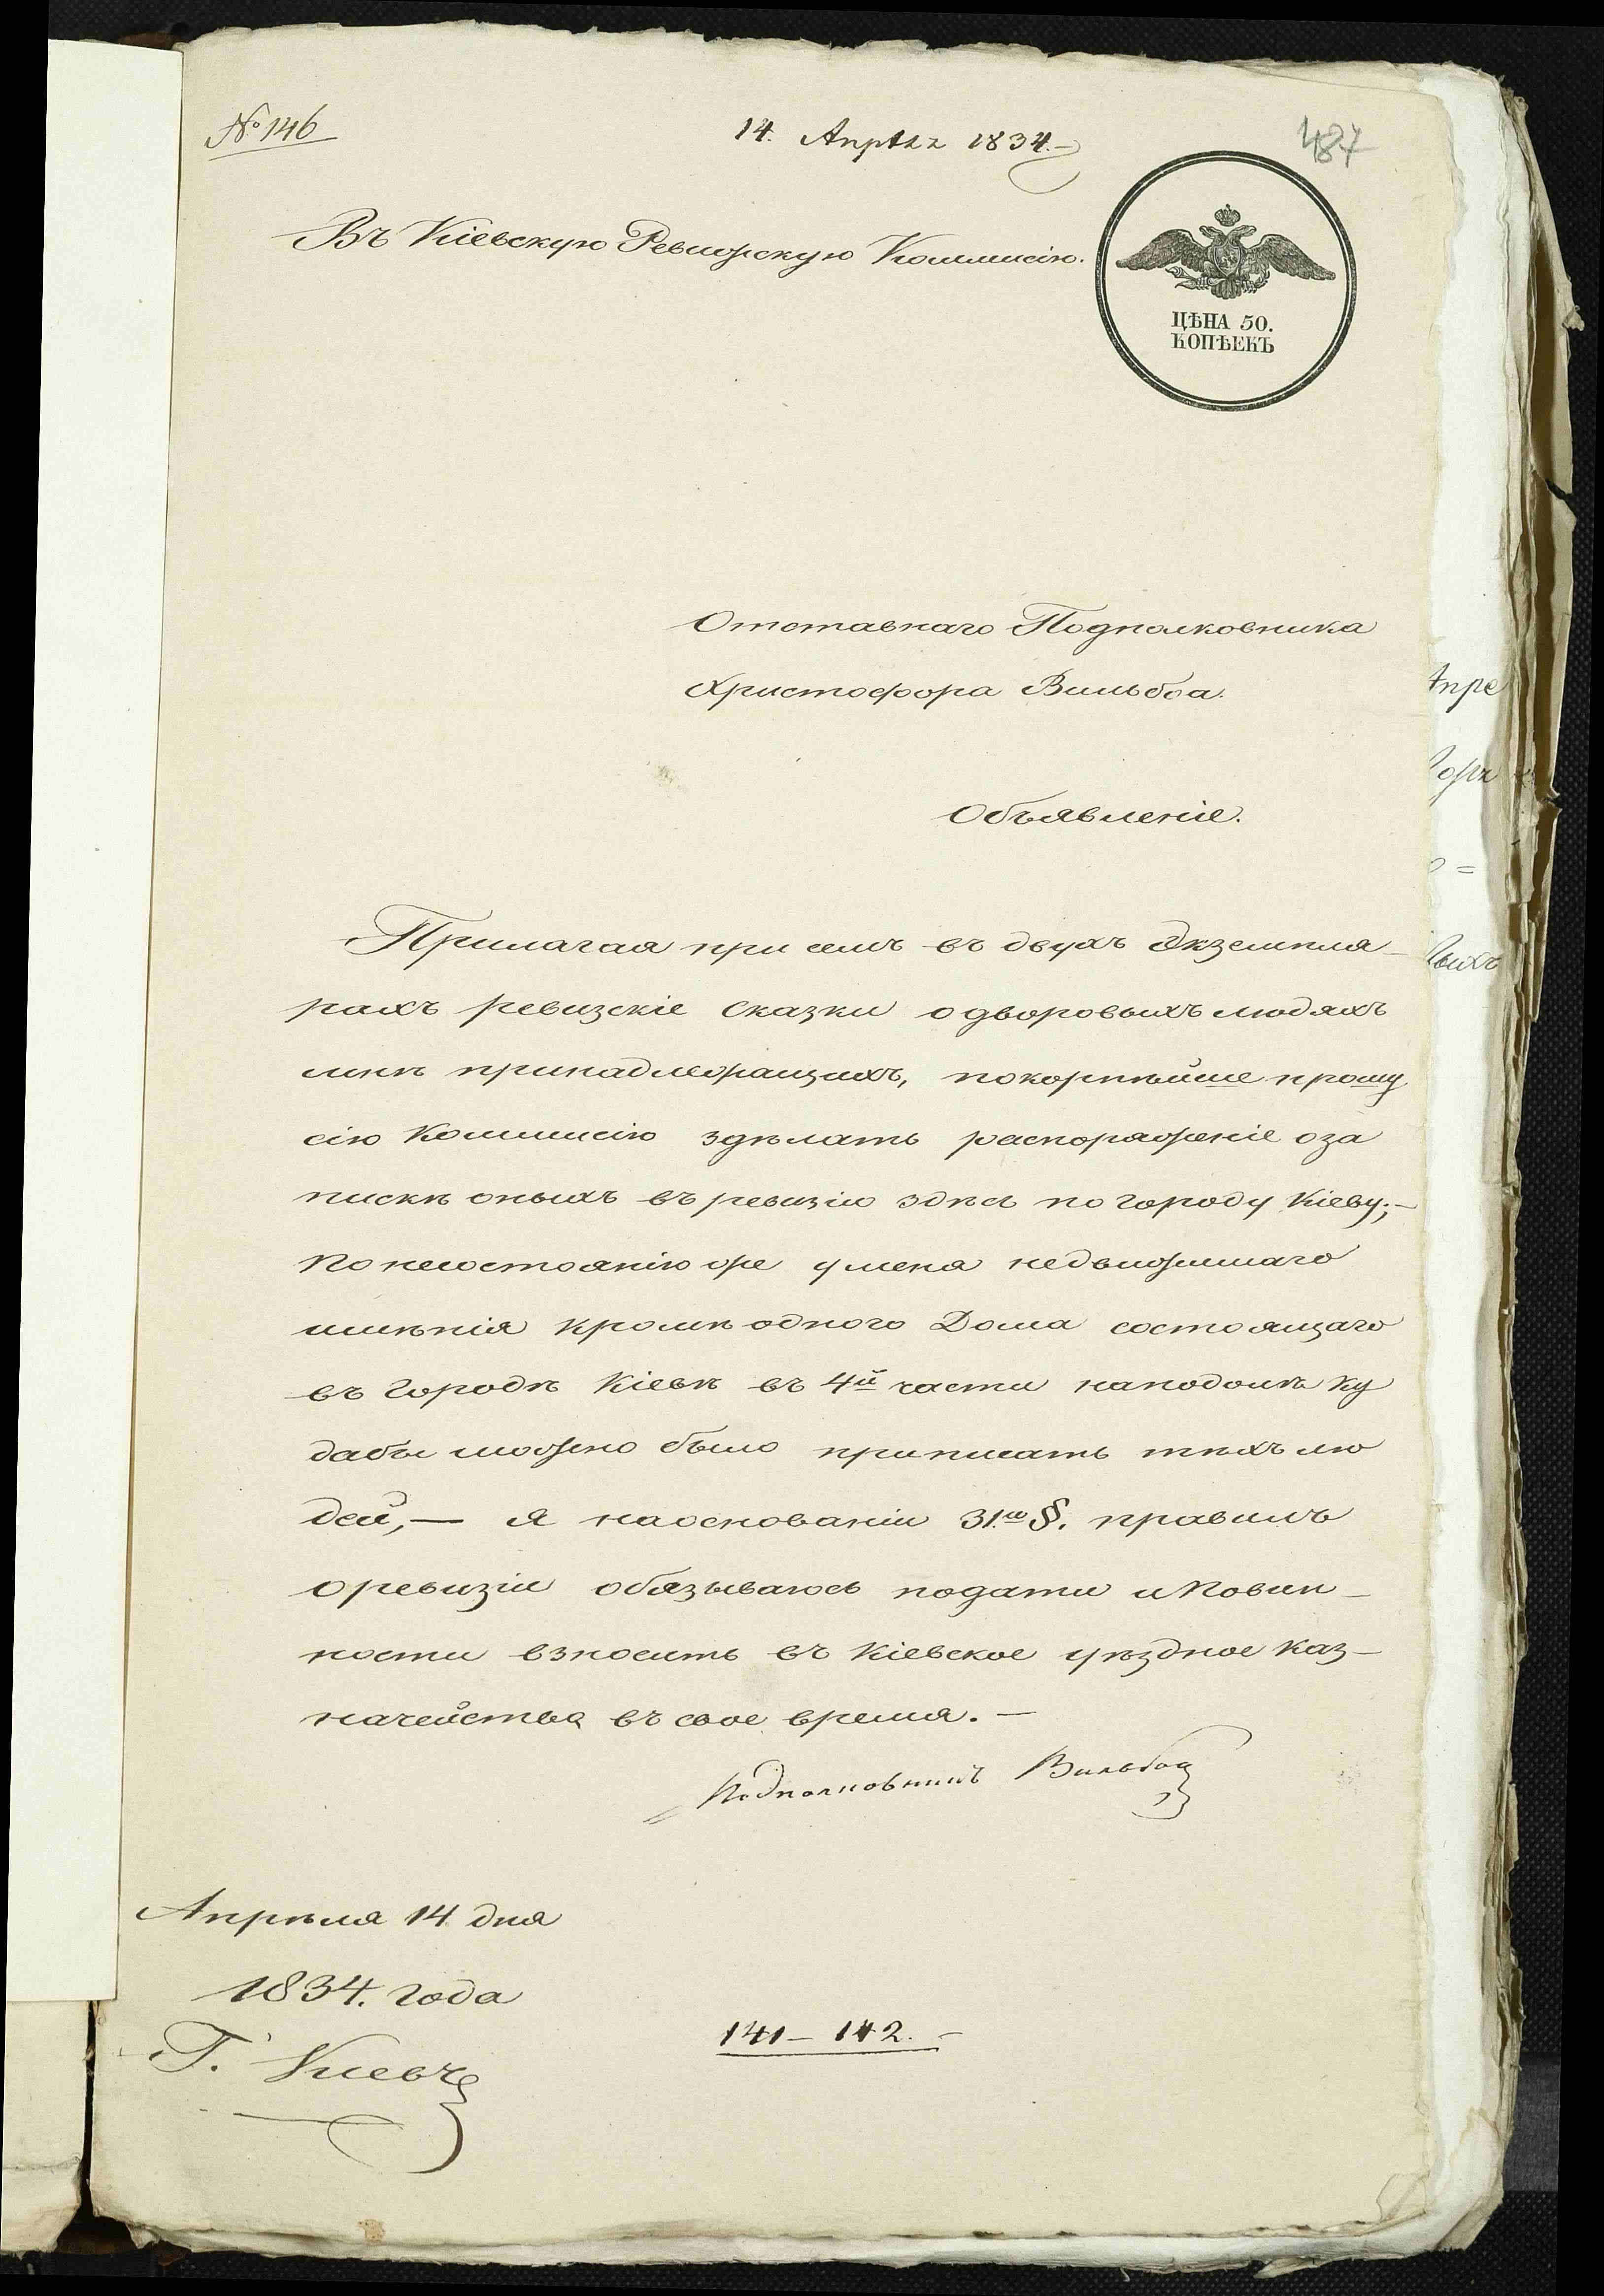 № 146
14. Апрѣля 1834.
487
Въ Кіевскую Ревизскую Коммисію.
ЦѢНА 50.
КОПѢЕКЪ
Отставнаго Подполковника
Христофора Вильбоа.
Объявленіе.
Прилагая при семъ въ двухъ Экземпля-
рахъ ревизскіе сказки о дворовыхъ людяхъ
мнѣ принадлежащихъ, покорнѣйше прошу
сію Коммисію здѣлать распоряженіе о за
пискѣ оныхъ въ ревизію здѣсь по городу Кіеву;-
По несостоянію же у меня недвижимаго
имѣнія кромѣ одного Дома состоящаго
въ городѣ Кіевѣ въ 4й части на подолѣ ку
дабы можно было приписать тѣхъ лю
дей,- я на основаніи 31го §. правилъ
о ревизіи обязываюсь подати и Повин-
ности взносить въ Кіевское уѣздное Каз-
начейства въ свое время.-
Подполковникъ Вильбоа
Апрѣля 14 дня
1834. года
Г. Киевъ
141 - 142. -
Апре